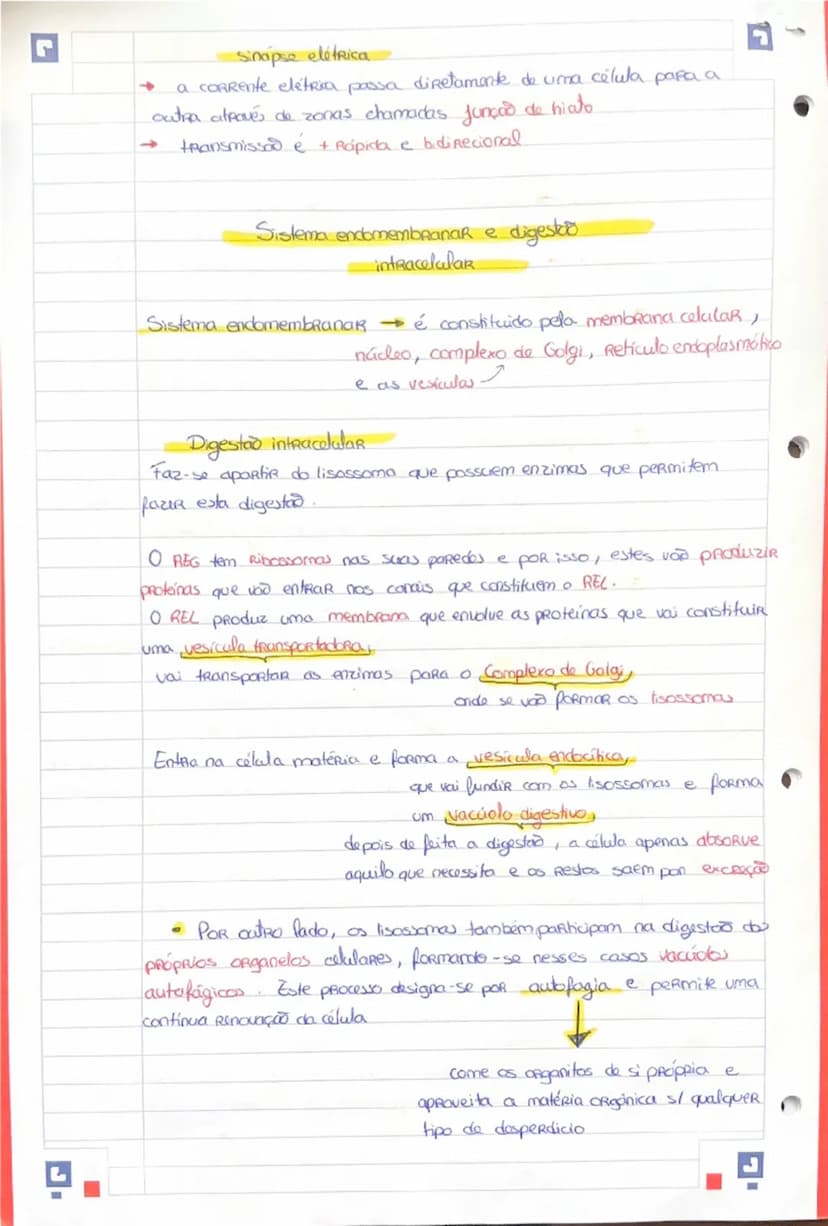 sinapse elétrica
→ a corrente elétrica passa diretamente de uma célula para a
outra através de zonas chamadas junção de hiato
→ transmissão é + rápida e bidirecional
Sistema endomembranar e digestão
intracelular
Sistema endomembranar → é constituido pela membrana celular,
núcleo, complexo de Golgi, retículo endoplasmático
e as vesículas
Digestão intracelular
Faz-se apartir do lisossoma que possuem enzimas que permitem
fazer esta digestão.
O REG tem ribossomas nas suas paredes e por isso, estes vão produzir
proteínas que vão entrar nos canais que constituem o REL.
O REL produz uma membrana que envolve as proteínas que vai constituir
uma vesícula transportadora,
vai transportar as enzimas para o Complexo de Golgi,
onde se vão formar os lisossomas
Entra na célula matéria e forma a vesícula endocítica,
que vai fundir com os lisossomas e forma
um vacúolo digestivo,
depois de feita a digestão, a célula apenas absorve
aquilo que necessita e os restos saem por excreção
• Por outro lado, os lisossomas também participam na digestão dos
próprios organelos celulares, formando-se nesses casos vacúolos
autofágicos. Este processo designa-se por autofagia e permite uma
contínua renovação da célula
come os organitos de si própria e
aproveita a matéria orgânica s/ qualquer
tipo de desperdicio